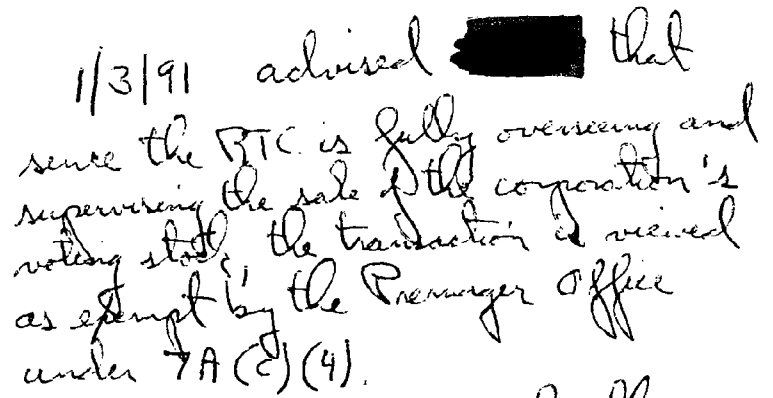 1/3/91 advised that
since the RTC is fully overseeing and
supervising the sale of the corporation's
voting stock, the transaction is viewed
as exempt by the Premerger Office
under 7A(c)(4).